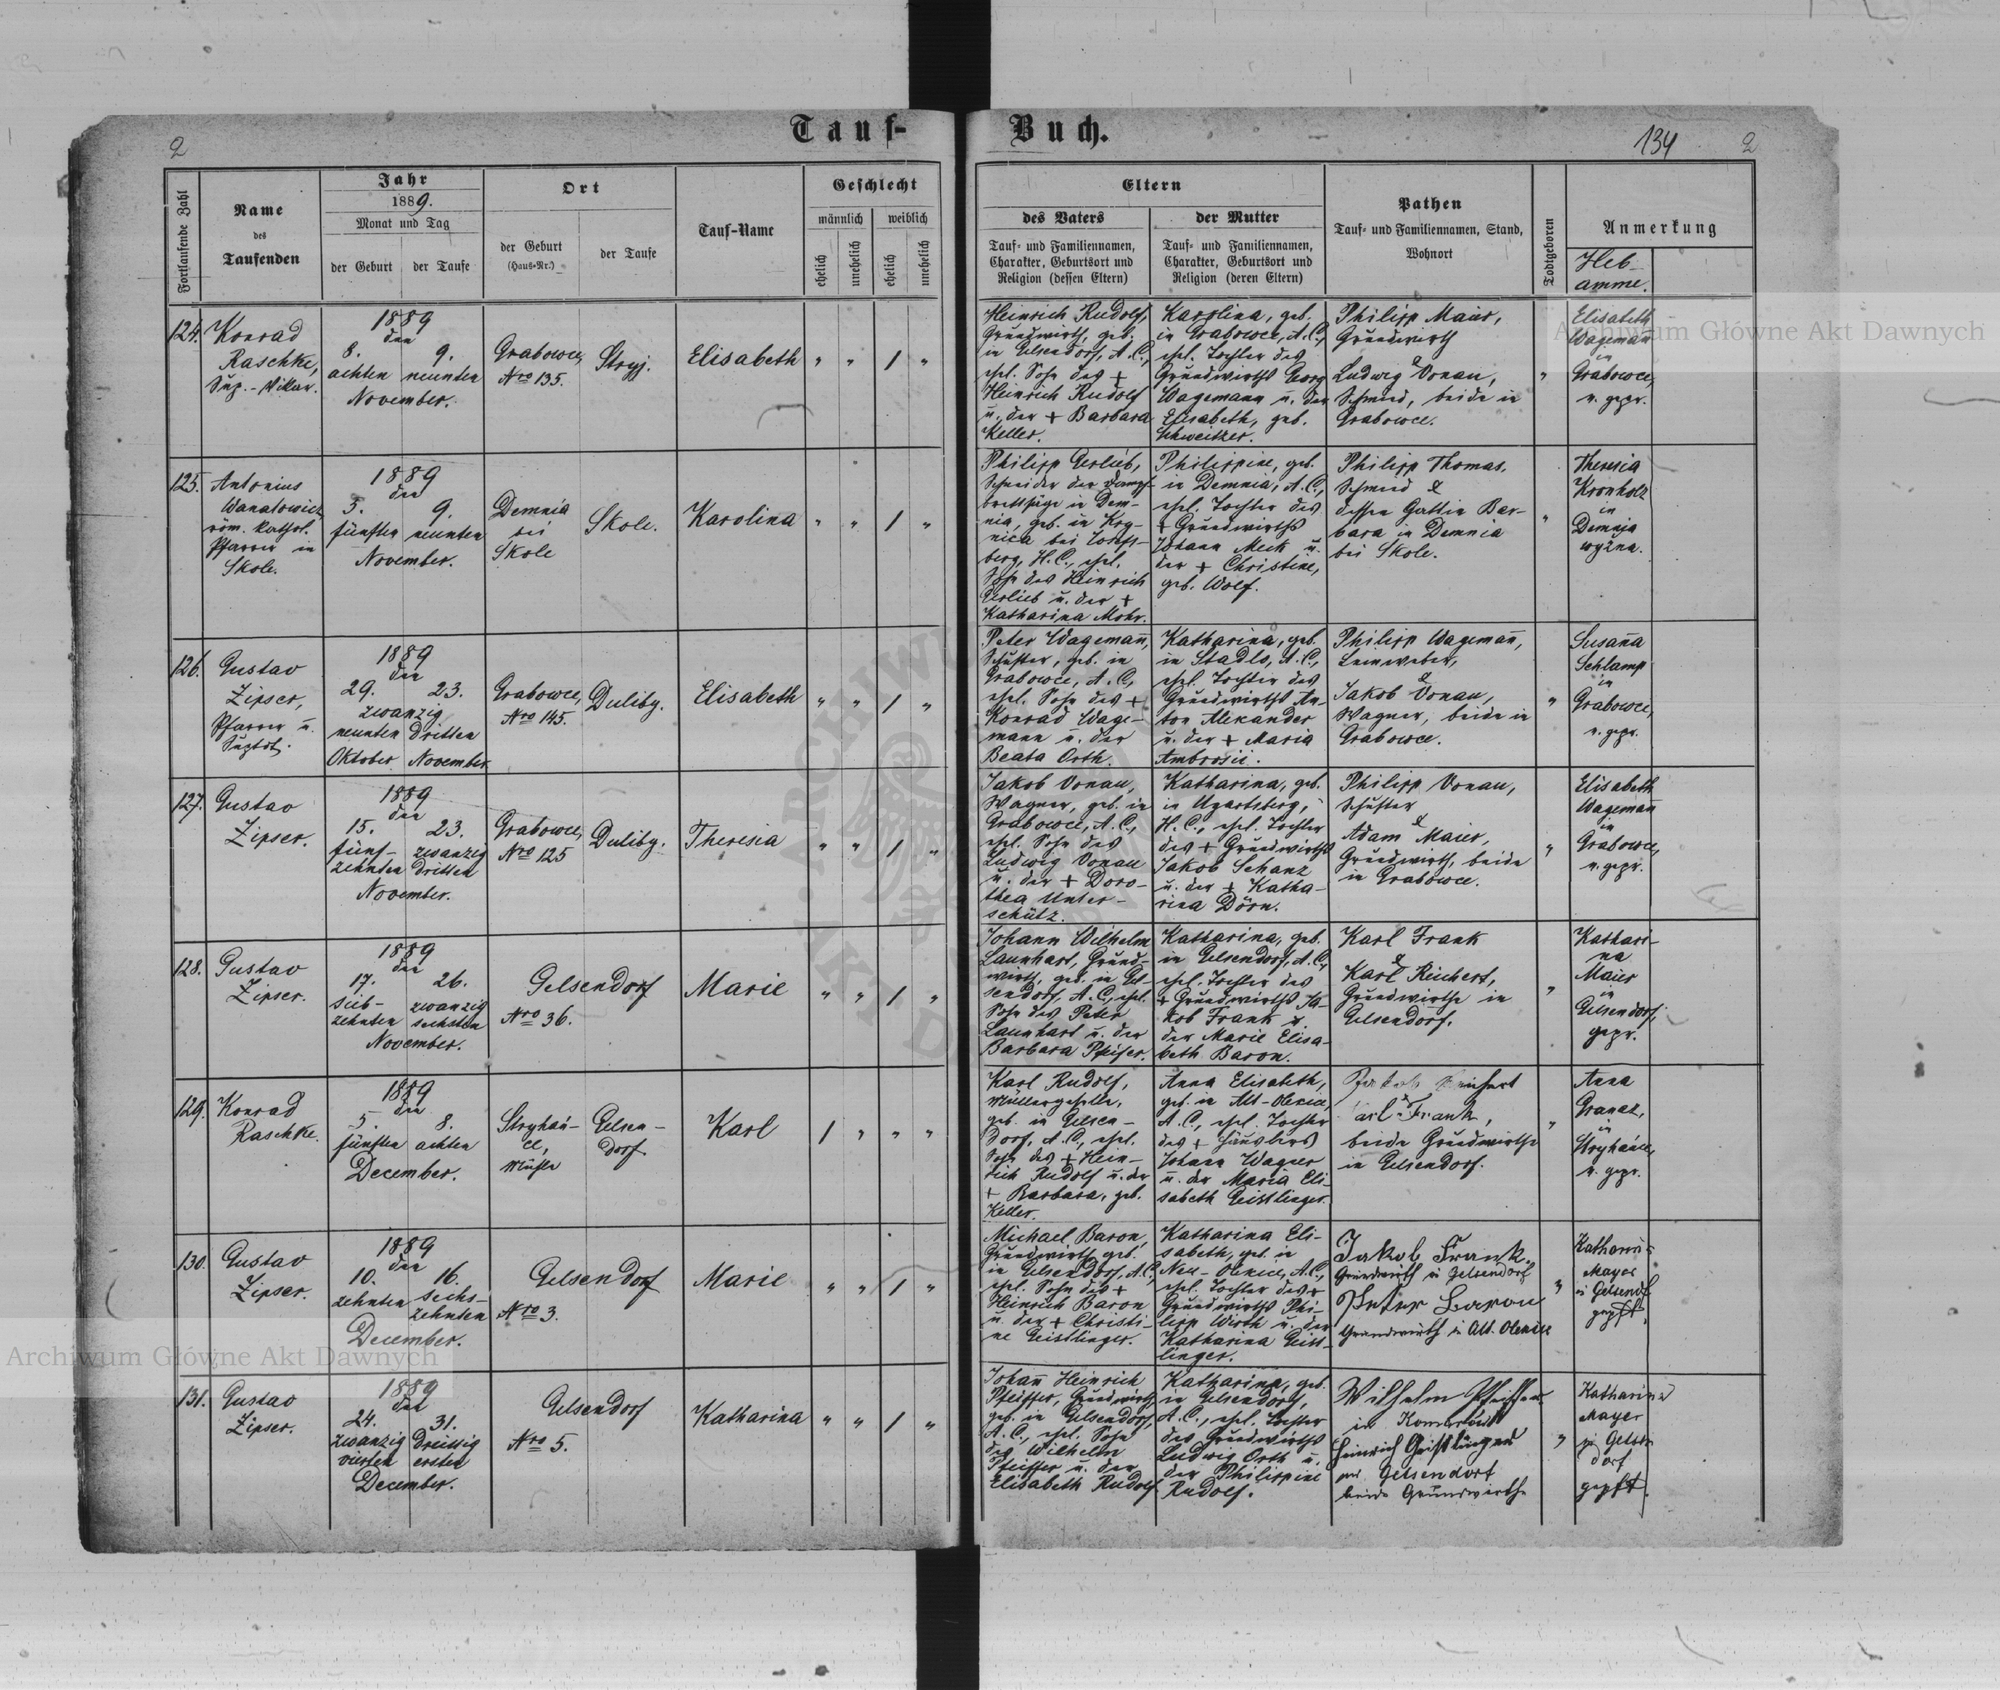 Tauf-Buch.
2
134
2
Fortlaufende Zahl
Name
des
Taufenden
Jahr
1889.
Monat und Tag
der Geburt
der Taufe
Ort
der Geburt
(Haus-Nr.)
der Taufe
Tauf-Name
Geschlecht
männlich
weiblich
ehelich
unehelich
ehelich
unehelich
Eltern
des Vaters
Tauf- und Familiennamen,
Charakter, Geburtsort und
Religion (dessen Eltern)
der Mutter
Tauf- und Familiennamen,
Charakter, Geburtsort und
Religion (deren Eltern)
Pathen
Tauf- und Familiennamen, Stand,
Wohnort
Todtgeboren
Anmerkung
Heb-
amme.
124.
Konrad
Raschke,
Sup.-Vikar.
1889
den
8. 9.
achten neunten
November.
Grabowce,
Nro 135.
Stryj.
Elisabeth
" " 1 "
Heinrich Rudolf,
Grundwirth, geb.
in Gelsendorf, A.C.,
ehel. Sohn des +
Heinrich Rudolf
u. der + Barbara
Keller.
Karolina, geb.
in Grabowce, A.C.,
ehel. Tochter des
Grundwirths Georg
Wagemann u. der
Elisabeth, geb.
Schweitzer.
Philipp Maier,
Grundwirth
&
Ludwig Vonau,
Schmied, beide in
Grabowce.
"
Elisabeth
Wagemañ
in
Grabowce,
n. gepr.
125.
Antonius
Wanatowicz
röm. kathol.
Pfarrer in
Skole.
1889
den
5. 9.
fünften neunten
November.
Demnia
bei
Skole
Skole.
Karolina
" " 1 "
Philipp Gerlieb,
Schneider der Dampf-
brettsäge in Dem-
nia, geb. in Krg-
nica bei Josefs-
berg, H.C., ehel.
Sohn des Heinrich
Gerlieb u. der +
Katharina Mohr.
Philippine, geb.
in Demnia, A.C.,
ehel. Tochter des
+ Grundwirths
Johann Meck u.
der + Christine,
geb. Wolf.
Philipp Thomas,
Schmied &
dessen Gattin Bar-
bara in Demnia
bei Skole.
"
Theresia
Kronholz
in
Demnja
wyżna.
126.
Gustav
Zipser,
Pfarrer u.
Suptdt.
1889
den
29. 23.
zwanzig
neunten dritten
Oktober November.
Grabowce,
Nro 145.
Duliby.
Elisabeth
" " 1 "
Peter Wagemañ,
Schuster, geb. in
Grabowce, A.C.,
ehel. Sohn des +
Konrad Wage-
mann u. der
Beata Orth.
Katharina, geb.
in Stadlo, A.C.,
ehel. Tochter des
Grundwirths An-
ton Alexander
u. der + Maria
Ambrosii.
Philipp Wagemañ,
Leinweber,
&
Jakob Vonau,
Wagner, beide in
Grabowce.
"
Susaña
Schlamp
in
Grabowce,
n. gepr.
127.
Gustav
Zipser.
1889
den
15. 23.
fünf- zwanzig
zehnten dritten
November.
Grabowce,
Nro 125
Duliby.
Theresia
" " 1 "
Jakob Vonau,
Wagner, geb. in
Grabowce, A.C.,
ehel. Sohn des
Ludwig Vonau
u. der + Doro-
thea Unter-
schütz.
Katharina, geb.
in Ugartsberg,
H.C., ehel. Tochter
des + Grundwirths
Jakob Schanz
u. der + Katha-
rina Dörn.
Philipp Vonau,
Schuster
&
Adam Maier,
Grundwirth, beide
in Grabowce.
"
Elisabeth
Wagemañ
in
Grabowce,
n. gepr.
128.
Gustav
Zipser.
1889
den
17. 26.
sieb- zwanzig
zehnten sechsten
November.
Gelsendorf
Nro 36.
Marie
" " 1 "
Johann Wilhelm
Launhart, Grund-
wirth, geb. in Gel-
sendorf, A.C., ehel.
Sohn des Peter
Launhart u. der
Barbara Pfeifer.
Katharina, geb.
in Gelsendorf, A.C.,
ehel. Tochter des
+ Grundwirths Ja-
kob Frank u.
der Marie Elisa-
beth Baron.
Karl Frank
&
Karl Reichert,
Grundwirthe in
Gelsendorf.
"
Kathari-
na
Maier
in
Gelsendorf,
gepr.
129.
Konrad
Raschke.
1889
den
5. 8.
fünften achten
December.
Stryhań-
ce,
Mühle
Gelsen-
dorf
Karl
1 " " "
Karl Rudolf,
Müllergeselle,
geb. in Gelsen-
dorf, A.C., ehel.
Sohn des + Hein-
rich Rudolf u. der
+ Barbara, geb.
Keller.
Anna Elisabeth,
geb. in Alt-Olexice,
A.C., ehel. Tochter
des + Häuslers
Johann Wagner
u. der Maria Eli-
sabeth Geistlinger.
Jakob Reichert
&
Karl Frank,
beide Grundwirthe
in Gelsendorf.
"
Anna
Granaz,
in
Stryhańce,
n. gepr.
130.
Gustav
Zipser.
1889
den
10. 16.
zehnten sechs-
zehnten
December.
Gelsendorf
Nro 3.
Marie
" " 1 "
Michael Baron,
Grundwirth, geb.
in Gelsendorf, A.C.,
ehel. Sohn des +
Heinrich Baron
u. der + Christi-
ne Geistlinger.
Katharina Eli-
sabeth, geb. in
Neu-Olexice, A.C.,
ehel. Tochter des +
Grundwirths Phi-
lipp Wirth u. der
Katharina Geist-
linger.
Jakob Frank.
Grundwirth in Gelsendorf
Peter Baron
Grundwirth in Alt. Olexice
"
Katharina
Mayer
in Gelsendf
gepft.
131.
Gustav
Zipser.
1889
den
24. 31.
zwanzig dreissig
vierten ersten
December.
Gelsendorf
Nro 5.
Katharina
" " 1 "
Johañ Heinrich
Pfeiffer, Grundwirth,
geb. in Gelsendorf,
A.C., ehel. Sohn
des Wilhelm
Pfeiffer u. der
Elisabeth Rudolf.
Katharina, geb.
in Gelsendorf,
A.C., ehel. Tochter
des Grundwirths
Ludwig Orth u.
der Philippine
Rudolf.
Wilhelm Pfeiffer
in
Heinrich Geistlinger
Gelsendorf
beide Grundwirthe
"
Katharina
Mayer
in Gelsen
dorf
gepft.
Archiwum Główne Akt Dawnych
Archiwum Główne Akt Dawnych